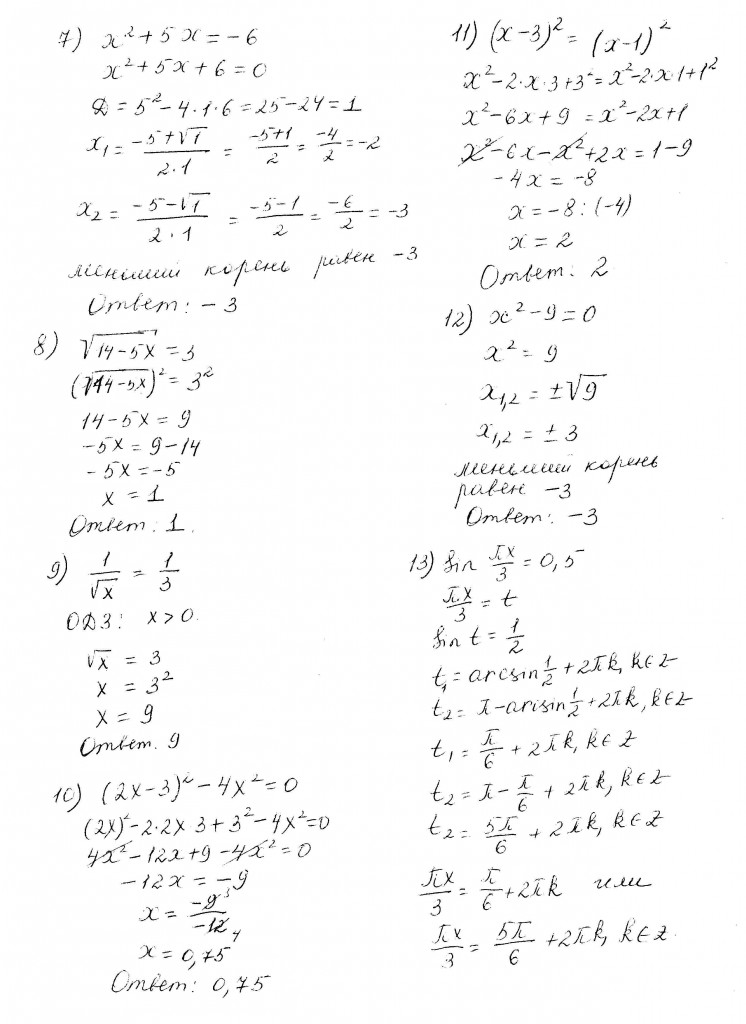 7) x² + 5x = -6
x² + 5x + 6 = 0
Д = 5² - 4·1·6 = 25 - 24 = 1
x₁ = (-5+√1)/(2·1) = (-5+1)/2 = -4/2 = -2
x₂ = (-5-√1)/(2·1) = (-5-1)/2 = -6/2 = -3
меньший корень равен -3
Ответ: -3
8) √(14-5x) = 3
(√(14-5x))² = 3²
14 - 5x = 9
-5x = 9 - 14
-5x = -5
x = 1
Ответ: 1.
9) 1/√x = 1/3
ОДЗ: x > 0.
√x = 3
x = 3²
x = 9
Ответ. 9
10) (2x-3)² - 4x² = 0
(2x)² - 2·2x 3 + 3² - 4x² = 0
4x² - 12x + 9 - 4x² = 0
-12x = -9
x = -9 3/-12 4
x = 0,75
Ответ: 0,75
11) (x-3)² = (x-1)²
x² - 2·x·3 + 3² = x² - 2·x·1 + 1²
x² - 6x + 9 = x² - 2x + 1
x² - 6x - x² + 2x = 1 - 9
-4x = -8
x = -8 : (-4)
x = 2
Ответ: 2
12) x² - 9 = 0
x² = 9
x₁,₂ = ±√9
x₁,₂ = ± 3
меньший корень
равен -3
Ответ: -3
13) sin πx/3 = 0,5
πx/3 = t
sin t = 1/2
t₁ = arcsin 1/2 + 2πk, k∈z
t₂ = π - arisin 1/2 + 2πk, k∈z
t₁ = π/6 + 2πk, k∈z
t₂ = π - π/6 + 2πk, k∈z
t₂ = 5π/6 + 2πk, k∈z
πx/3 = π/6 + 2πk или
πx/3 = 5π/6 + 2πk, k∈z.